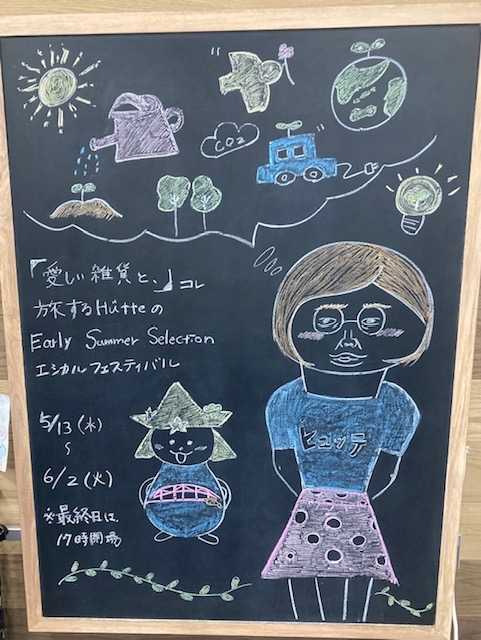 CO2
「愛しい雑貨と、」コレ
旅するHütteの
Early Summer Selection
エシカルフェスティバル
5/13(水)
〜
6/2(火)
※最終日は、
17時閉場
ヒュッテ